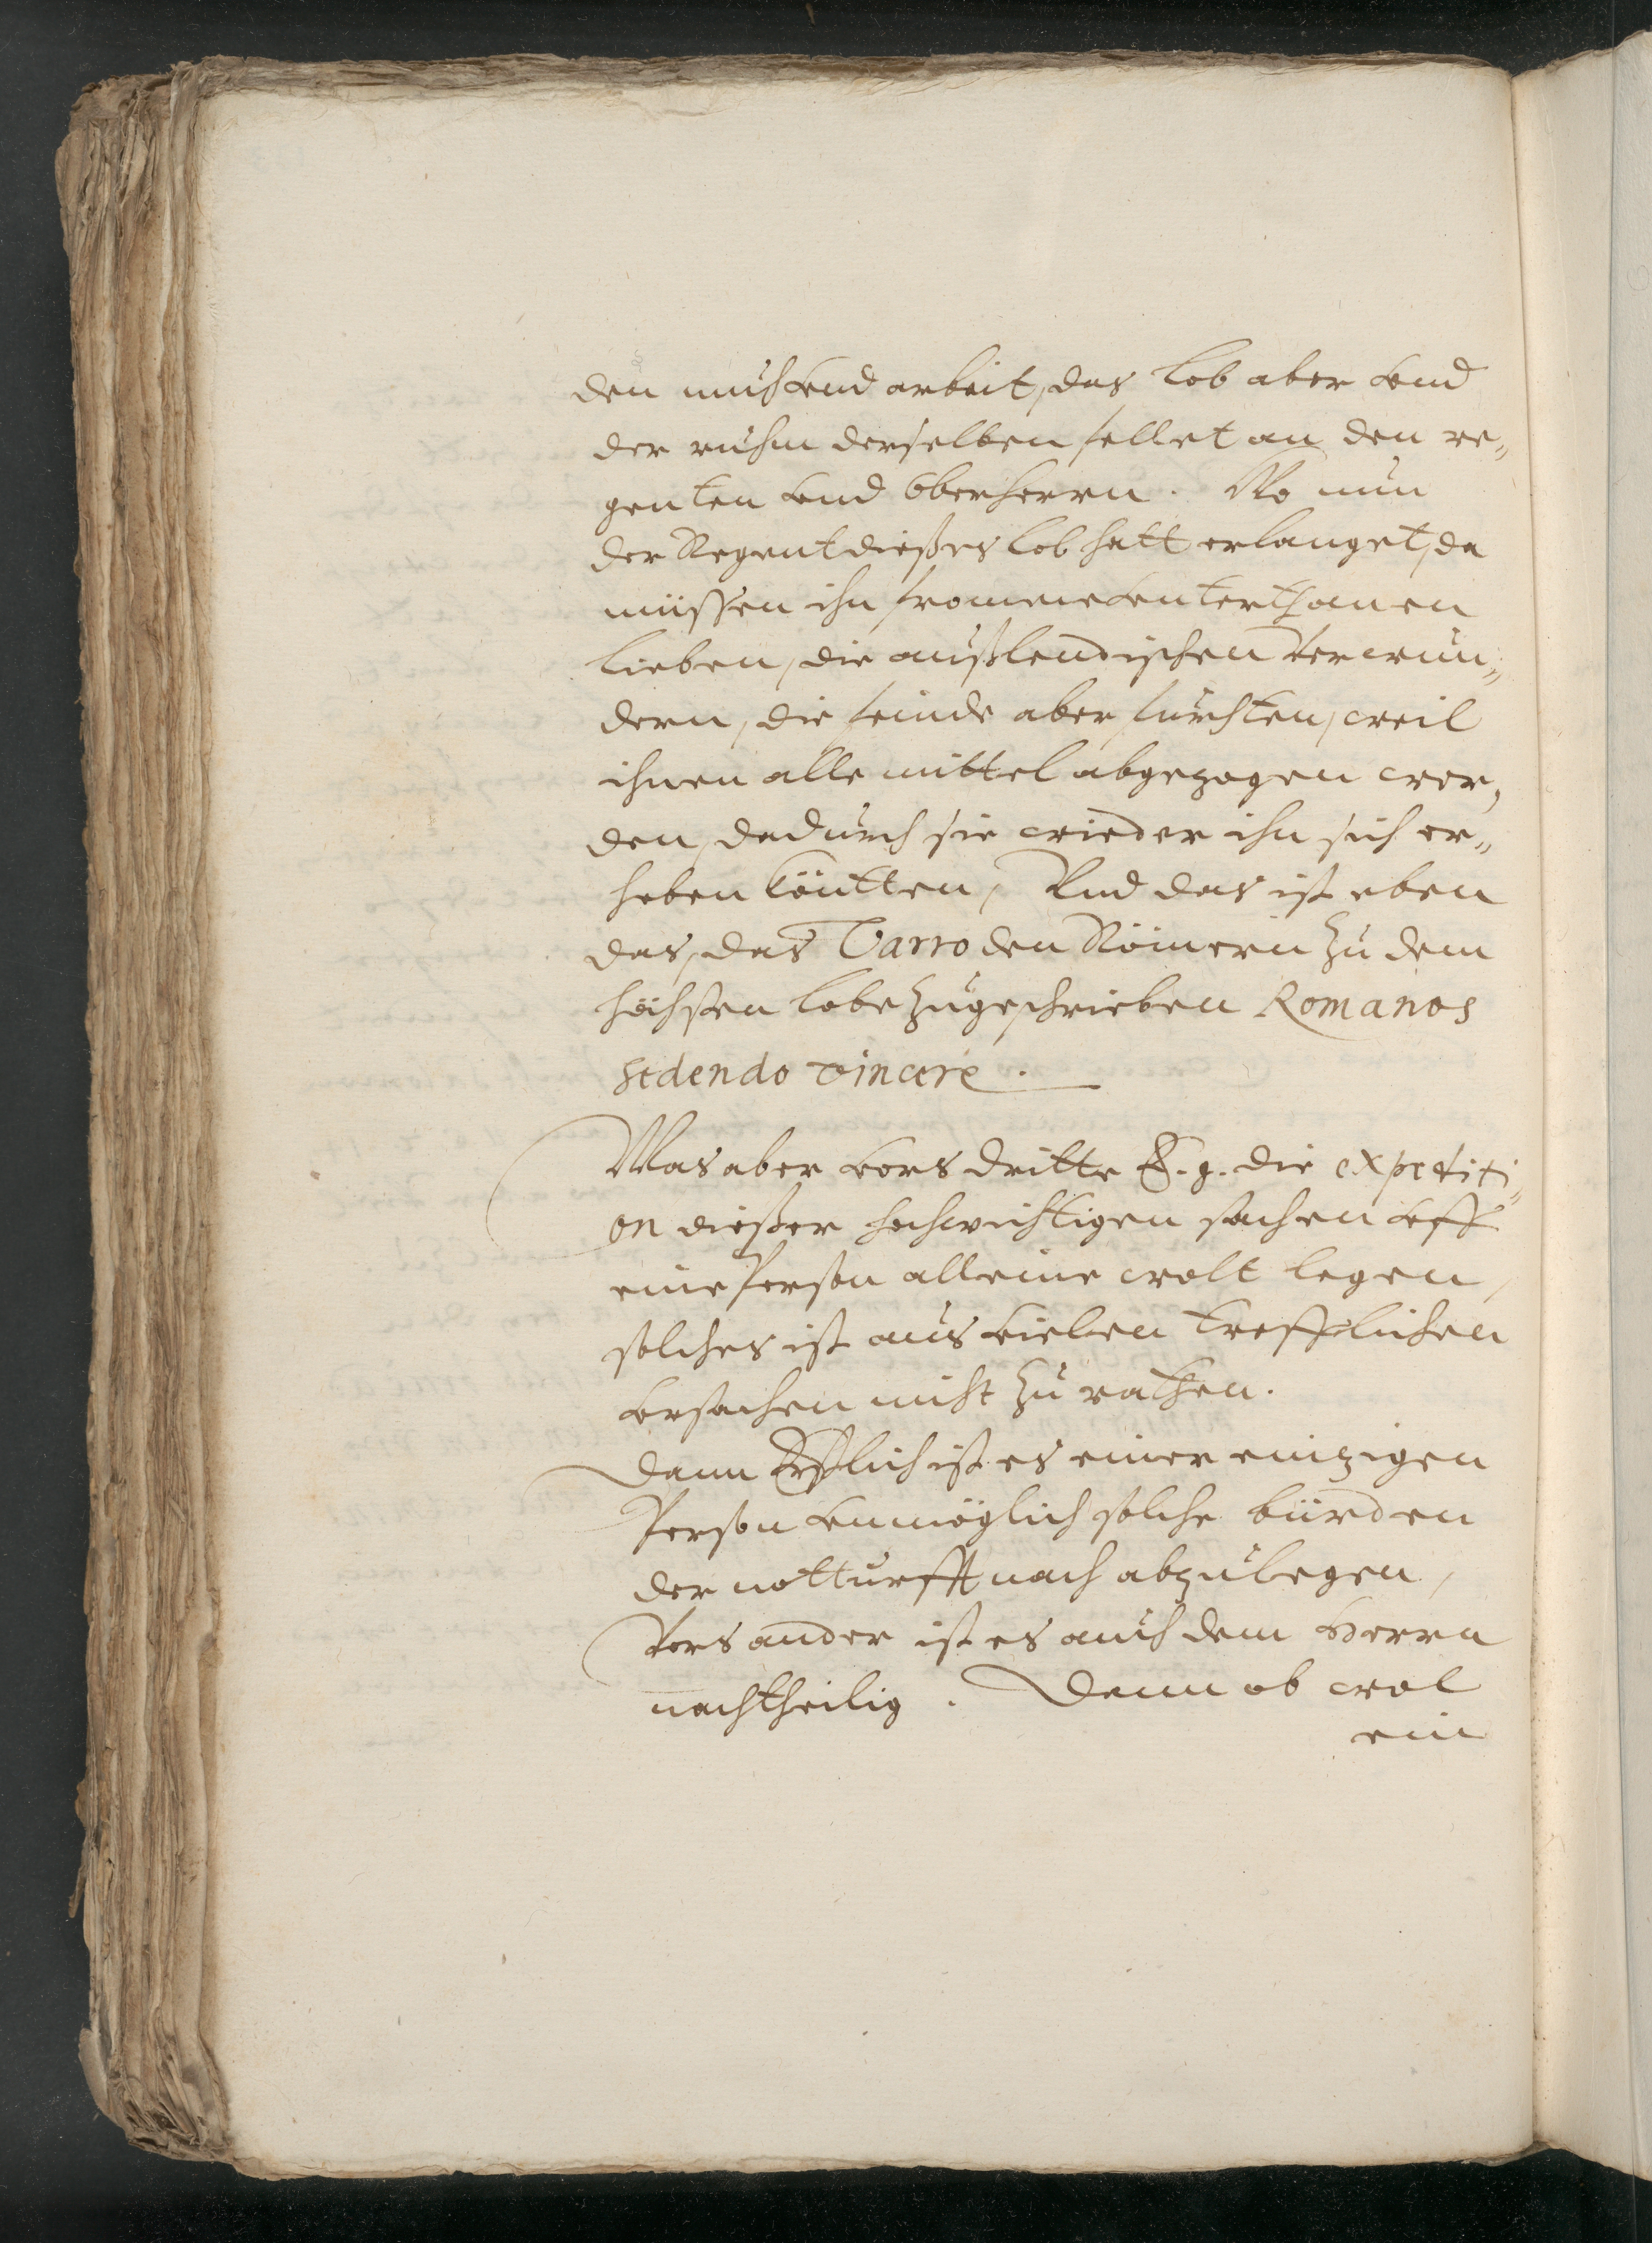 den muhe vnd arbeit, das lob aber vnd
der ruhm derselben fellet an den re„
genten vnd Oberherrn. Wo nun
der Regent dießes lob hatt erlanget, da
müssen ihn fromme vnterthanen
lieben, die außlendischen Verwun„
dern, die feinde aber furchten, weil
ihnen alle mittel abgezogen wer„
den, dadurch sie wieder ihn sich er„
heben köntten, Vnd das ist eben
das, das Varro den Römern zu dem
höchsten lobe zugeschrieben Romanos
sedendo vincere.
Was aber vors dritte E. g. die expediti„
on dießer hochwichtigen sachen vff
eine Person alleine wolt legen,
solches ist aus vielen trefflichen
vrsachen nicht zu rathen.
Dann Erstlich ist es einer einzigen
Person vnmöglich solche bürden
der notturfft nach abzulegen,
Vors ander ist es auch dem Herrn
nachtheilig. Denn ob wol
ein